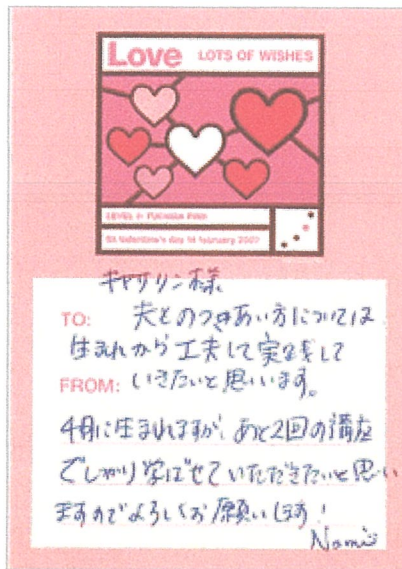 Love LOTS OF WISHES
Valentine's day 14 february
キャサリン様
TO: 夫とのつきあい方については
生まれから工夫して実践して
FROM: いきたいと思います。
4月に生まれますが、あと2回の講座
でしっかり学ばせていただきたいと思い
ますのでよろしくお願いします!
Nami